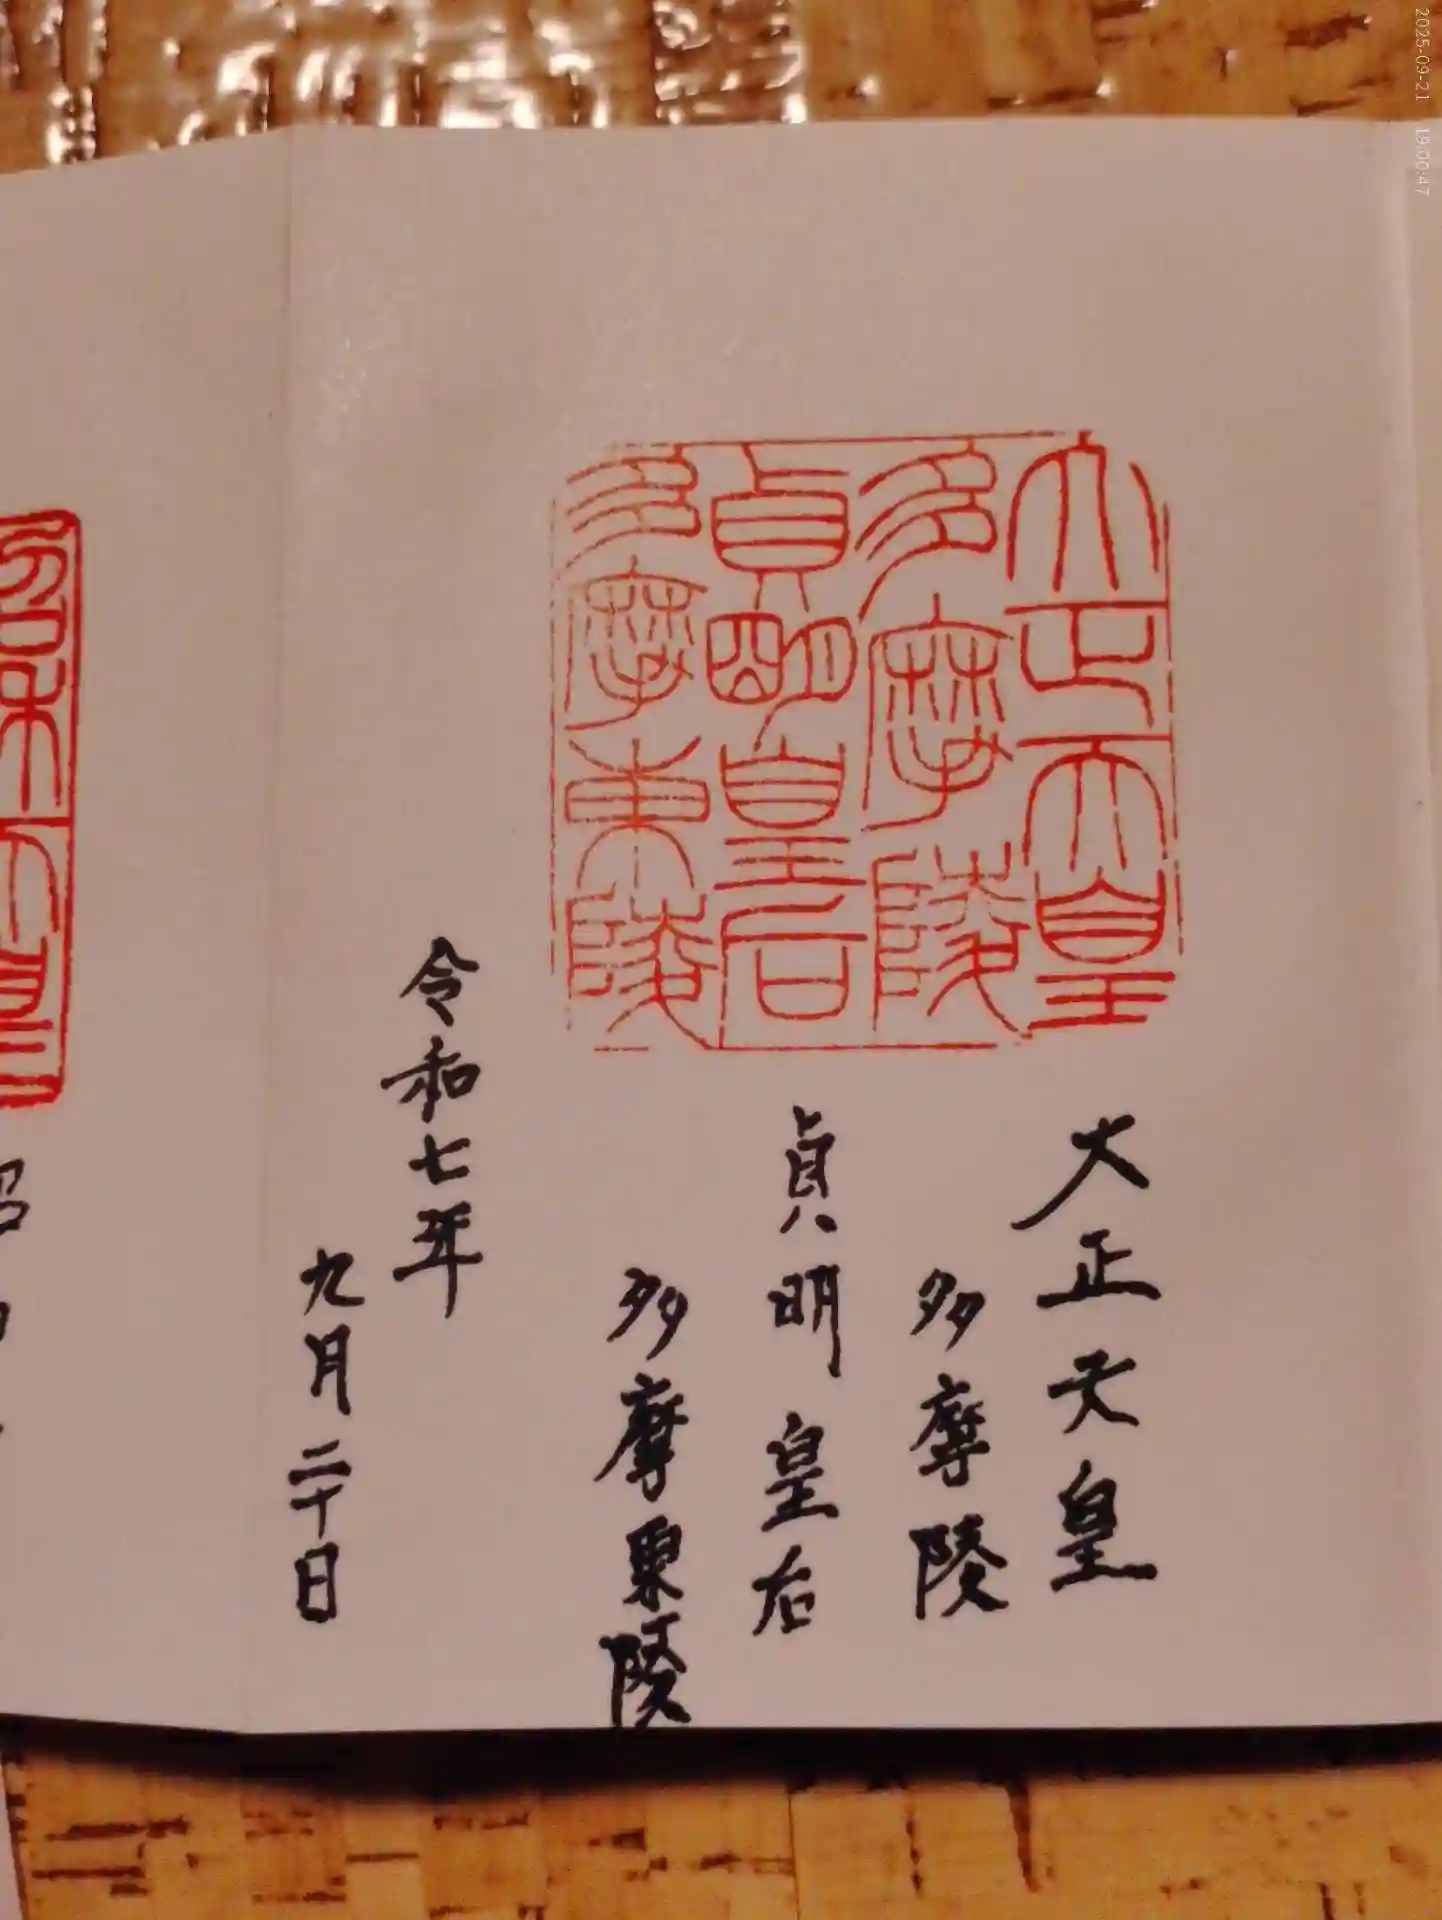 大正天皇
多摩陵
貞明皇后
多摩東陵
大正天皇
多摩陵
貞明皇后
多摩東陵
令和七年
九月二十日
昭和天皇
昭
2025-09-21 19:00:47